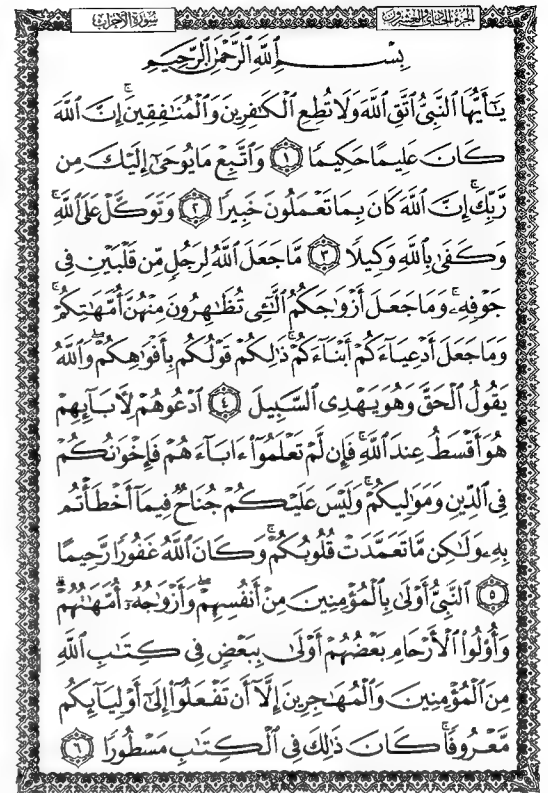 سورة الأحزاب
الجزء الحادي والعشرون
بِسْمِ ٱللَّهِ ٱلرَّحْمَٰنِ ٱلرَّحِيمِ
يَٰٓأَيُّهَا ٱلنَّبِىُّ ٱتَّقِ ٱللَّهَ وَلَا تُطِعِ ٱلْكَٰفِرِينَ وَٱلْمُنَٰفِقِينَ ۚ إِنَّ ٱللَّهَ
كَانَ عَلِيمًا حَكِيمًا ١ وَٱتَّبِعْ مَا يُوحَىٰٓ إِلَيْكَ مِن
رَّبِّكَ ۚ إِنَّ ٱللَّهَ كَانَ بِمَا تَعْمَلُونَ خَبِيرًا ٢ وَتَوَكَّلْ عَلَى ٱللَّهِ ۚ
وَكَفَىٰ بِٱللَّهِ وَكِيلًا ٣ مَّا جَعَلَ ٱللَّهُ لِرَجُلٍ مِّن قَلْبَيْنِ فِى
جَوْفِهِۦ ۚ وَمَا جَعَلَ أَزْوَٰجَكُمُ ٱلَّٰٓـِٔى تُظَٰهِرُونَ مِنْهُنَّ أُمَّهَٰتِكُمْ ۚ
وَمَا جَعَلَ أَدْعِيَآءَكُمْ أَبْنَآءَكُمْ ۚ ذَٰلِكُمْ قَوْلُكُم بِأَفْوَٰهِكُمْ ۖ وَٱللَّهُ
يَقُولُ ٱلْحَقَّ وَهُوَ يَهْدِى ٱلسَّبِيلَ ٤ ٱدْعُوهُمْ لِءَابَآئِهِمْ
هُوَ أَقْسَطُ عِندَ ٱللَّهِ ۚ فَإِن لَّمْ تَعْلَمُوٓا۟ ءَابَآءَهُمْ فَإِخْوَٰنُكُمْ
فِى ٱلدِّينِ وَمَوَٰلِيكُمْ ۚ وَلَيْسَ عَلَيْكُمْ جُنَاحٌ فِيمَآ أَخْطَأْتُم
بِهِۦ وَلَٰكِن مَّا تَعَمَّدَتْ قُلُوبُكُمْ ۚ وَكَانَ ٱللَّهُ غَفُورًا رَّحِيمًا
٥ ٱلنَّبِىُّ أَوْلَىٰ بِٱلْمُؤْمِنِينَ مِنْ أَنفُسِهِمْ ۖ وَأَزْوَٰجُهُۥٓ أُمَّهَٰتُهُمْ ۗ
وَأُو۟لُوا۟ ٱلْأَرْحَامِ بَعْضُهُمْ أَوْلَىٰ بِبَعْضٍ فِى كِتَٰبِ ٱللَّهِ
مِنَ ٱلْمُؤْمِنِينَ وَٱلْمُهَٰجِرِينَ إِلَّآ أَن تَفْعَلُوٓا۟ إِلَىٰٓ أَوْلِيَآئِكُم
مَّعْرُوفًا ۚ كَانَ ذَٰلِكَ فِى ٱلْكِتَٰبِ مَسْطُورًا ٦